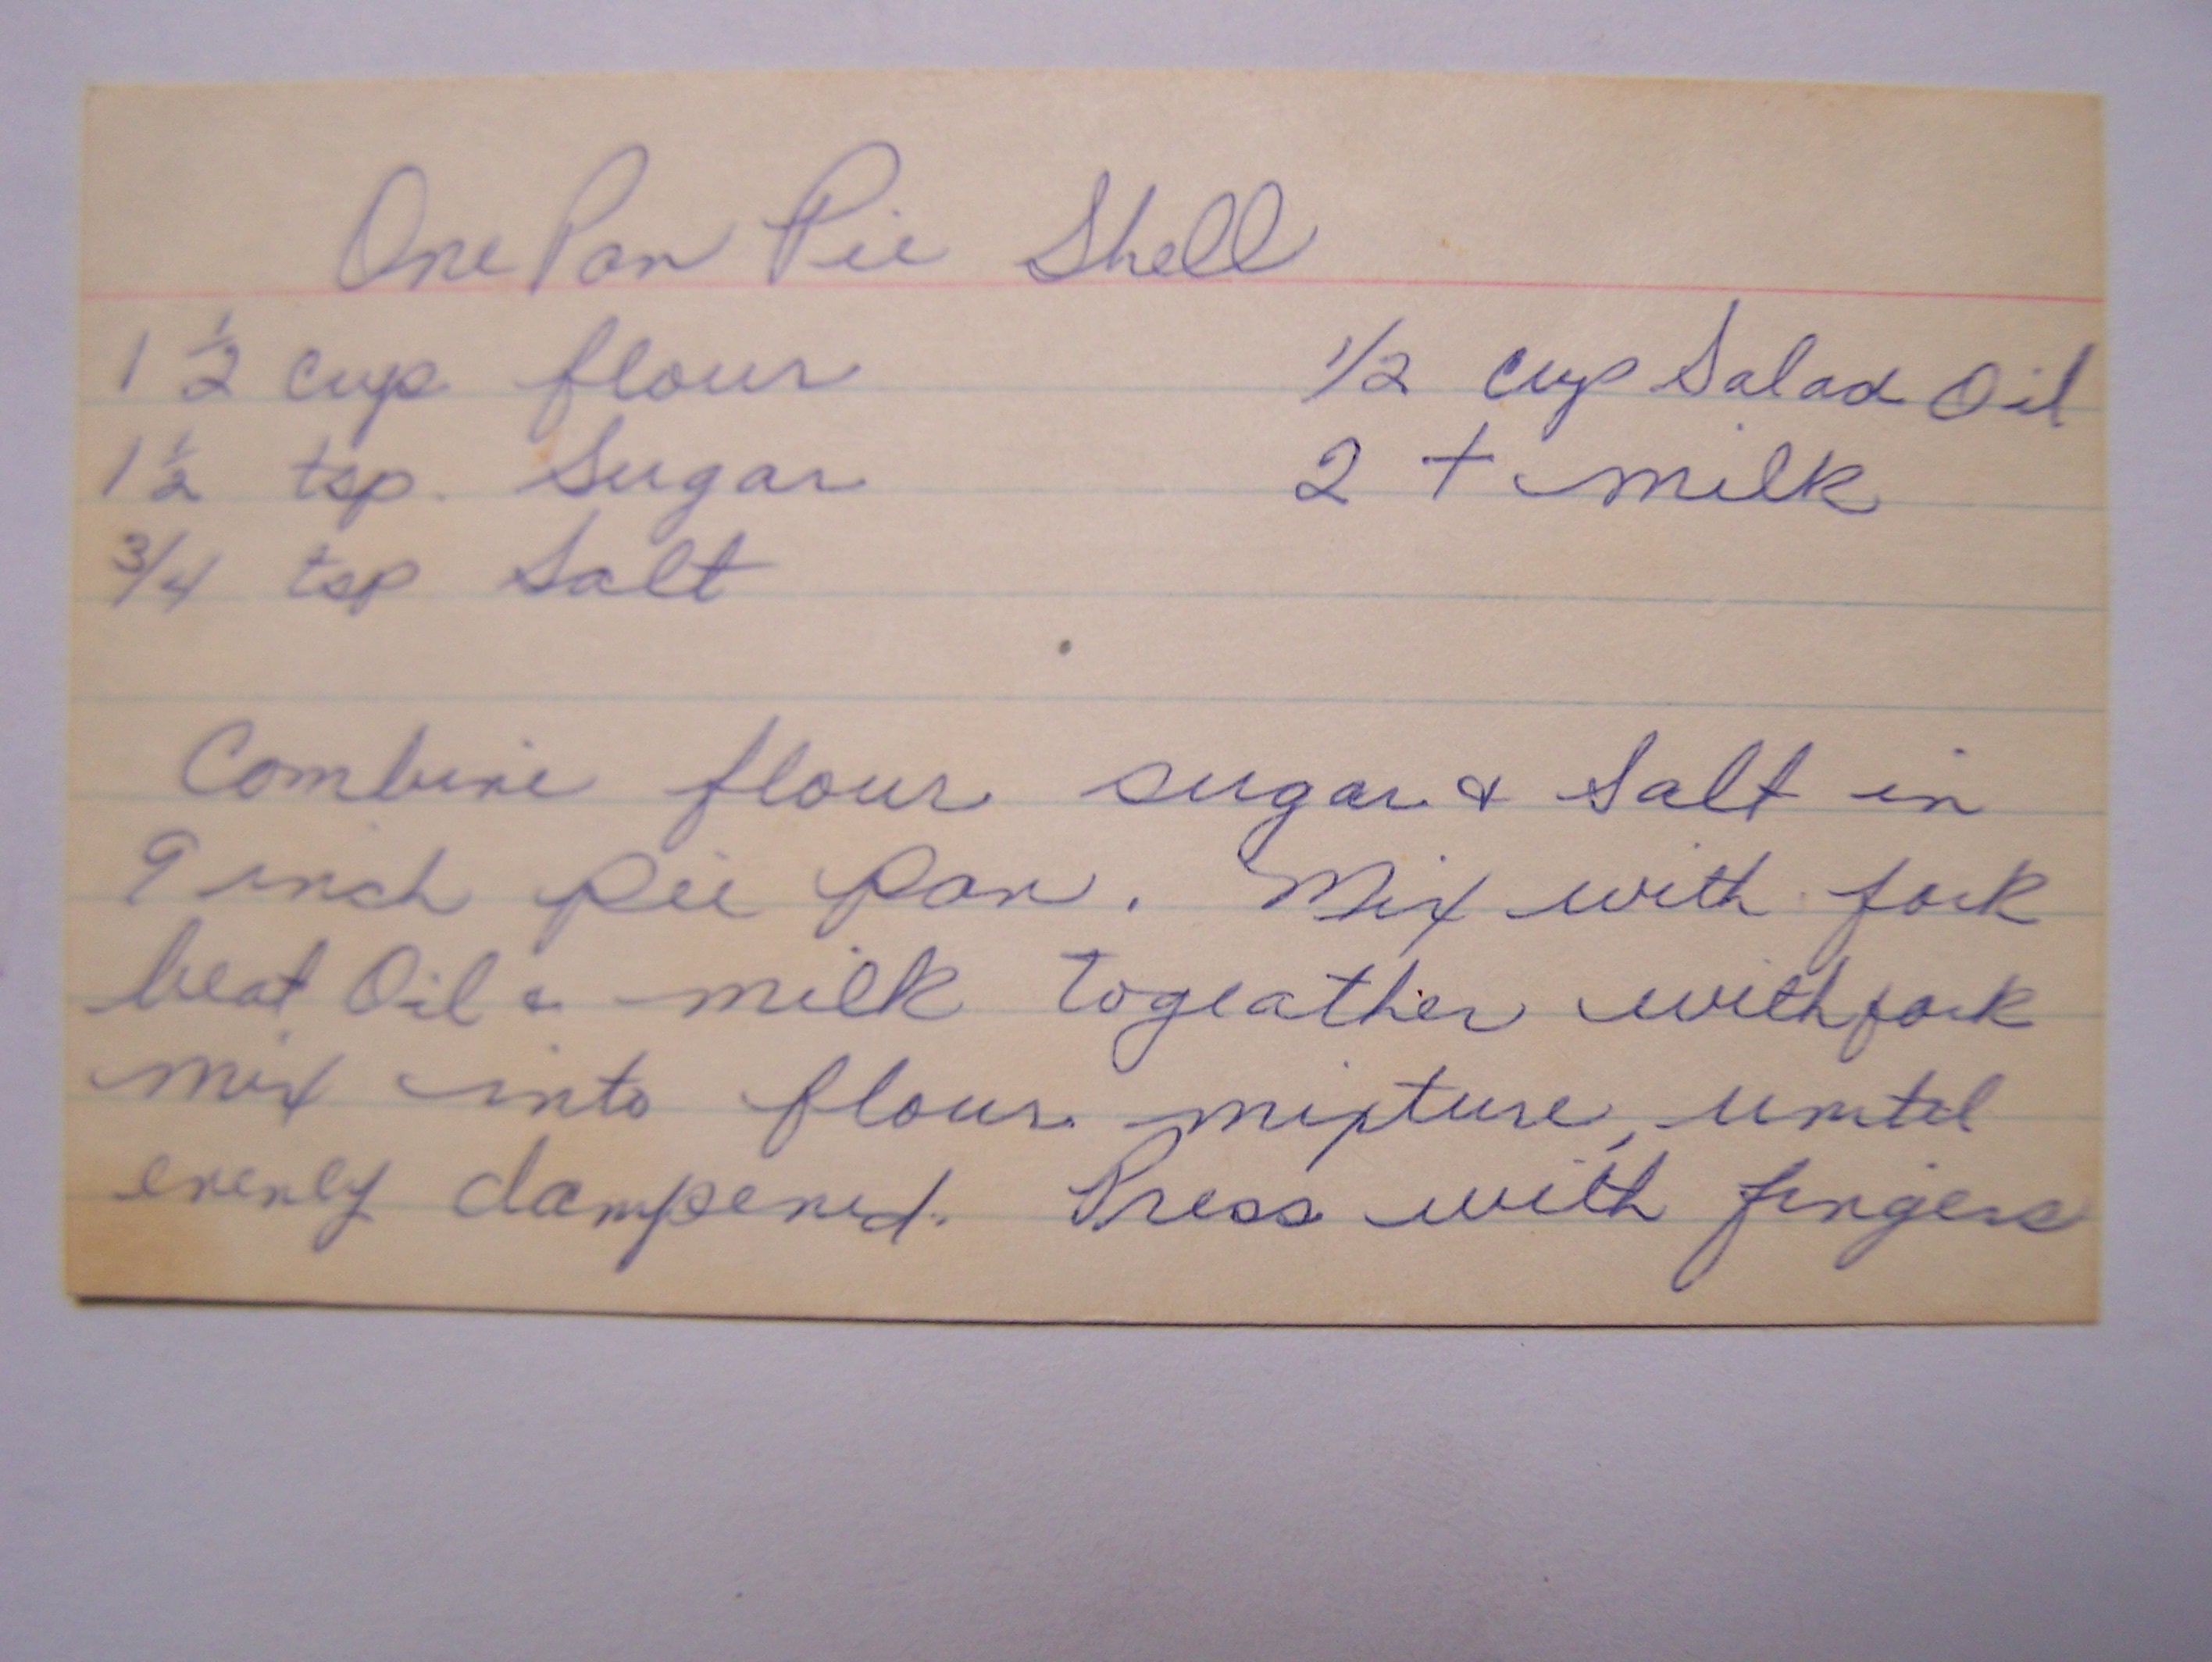 One Pan Pie Shell
1 1/2 cup flour 1/2 cup Salad Oil
1 1/2 tsp. Sugar 2 t milk
3/4 tsp Salt
Combine flour sugar & Salt in
9 inch Pie Pan. Mix with fork
beat Oil & milk togeather with fork
mix into flour mixture, until
evenly dampened. Press with fingers